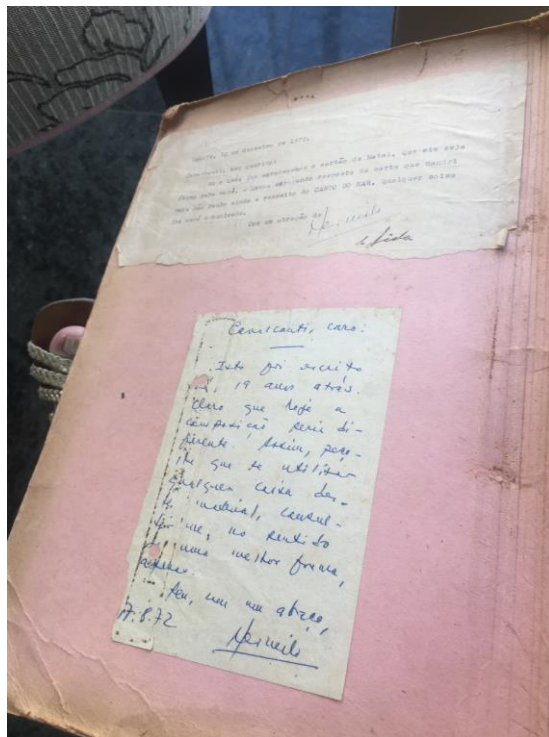 de 1972.
Cavalcanti, meu querido:
o cartão de Natal. Que ele seja
resposta da carta que mandei
para São Paulo ainda a respeito do CANTO DO MAR. Qualquer coisa
Com um abraço de Hermilo
e Leda
Cavalcanti, caro:
Isto foi escrito
há 19 anos atrás.
Claro que hoje a
composição seria di-
ferente. Assim, peço-
lhe que se utilizar
qualquer coisa des-
te material, consul-
te-me, no sentido
uma melhor forma,
apenas.
Seu, com um abraço,
7.8.72
Hermilo